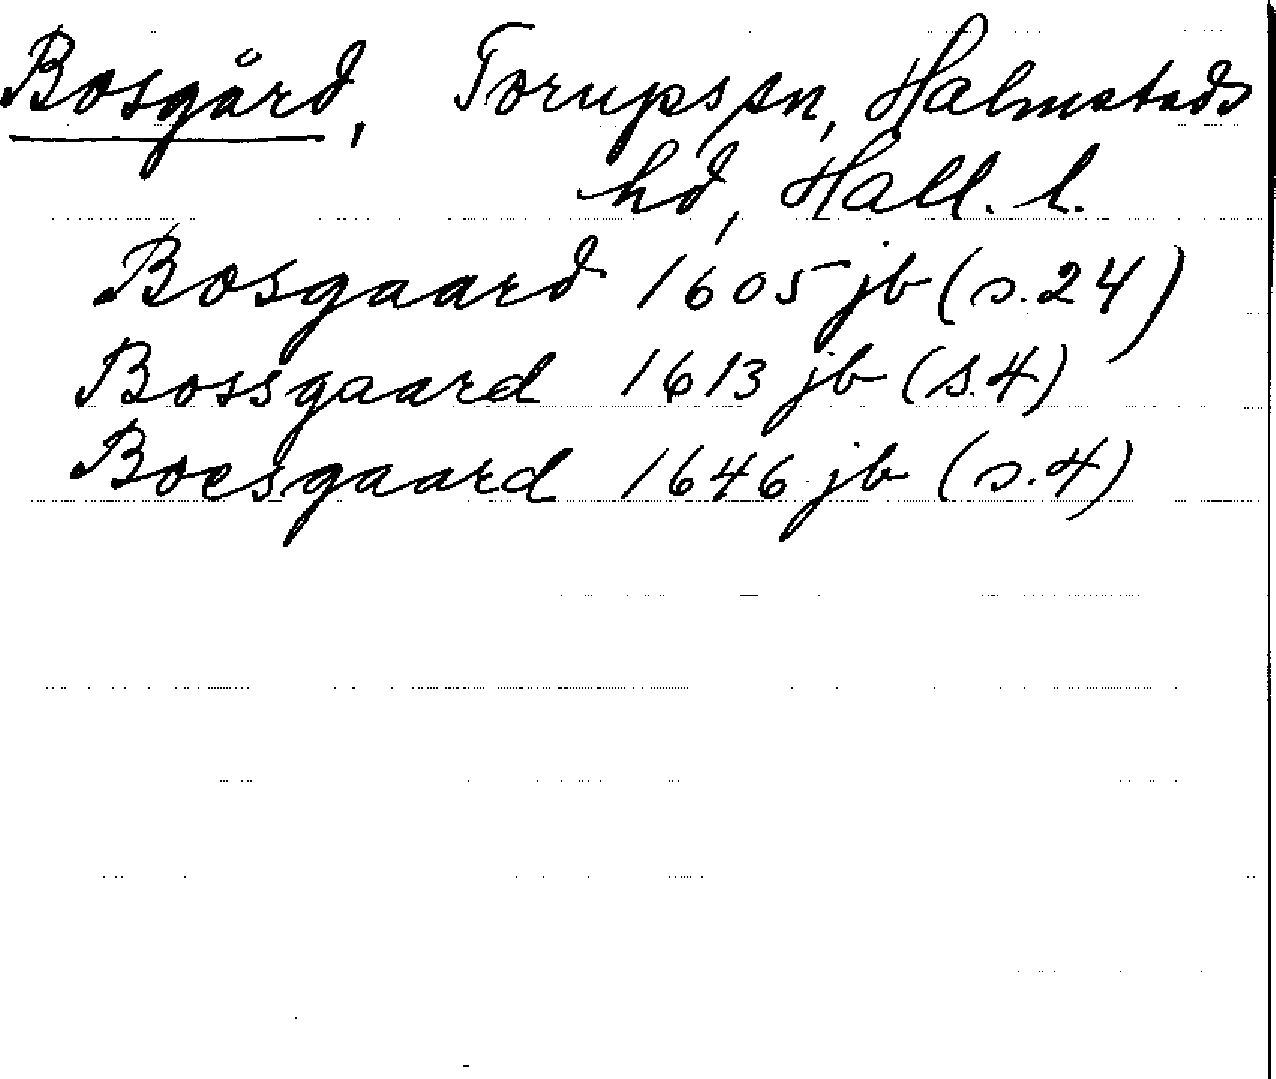 Bosgård, Torups sn, Halmstads
hd, Hall. l.
Bosgaard 1605 jb (s. 24)
Bossgaard 1613 jb (s. 4)
Boesgaard 1646 jb (s. 4)